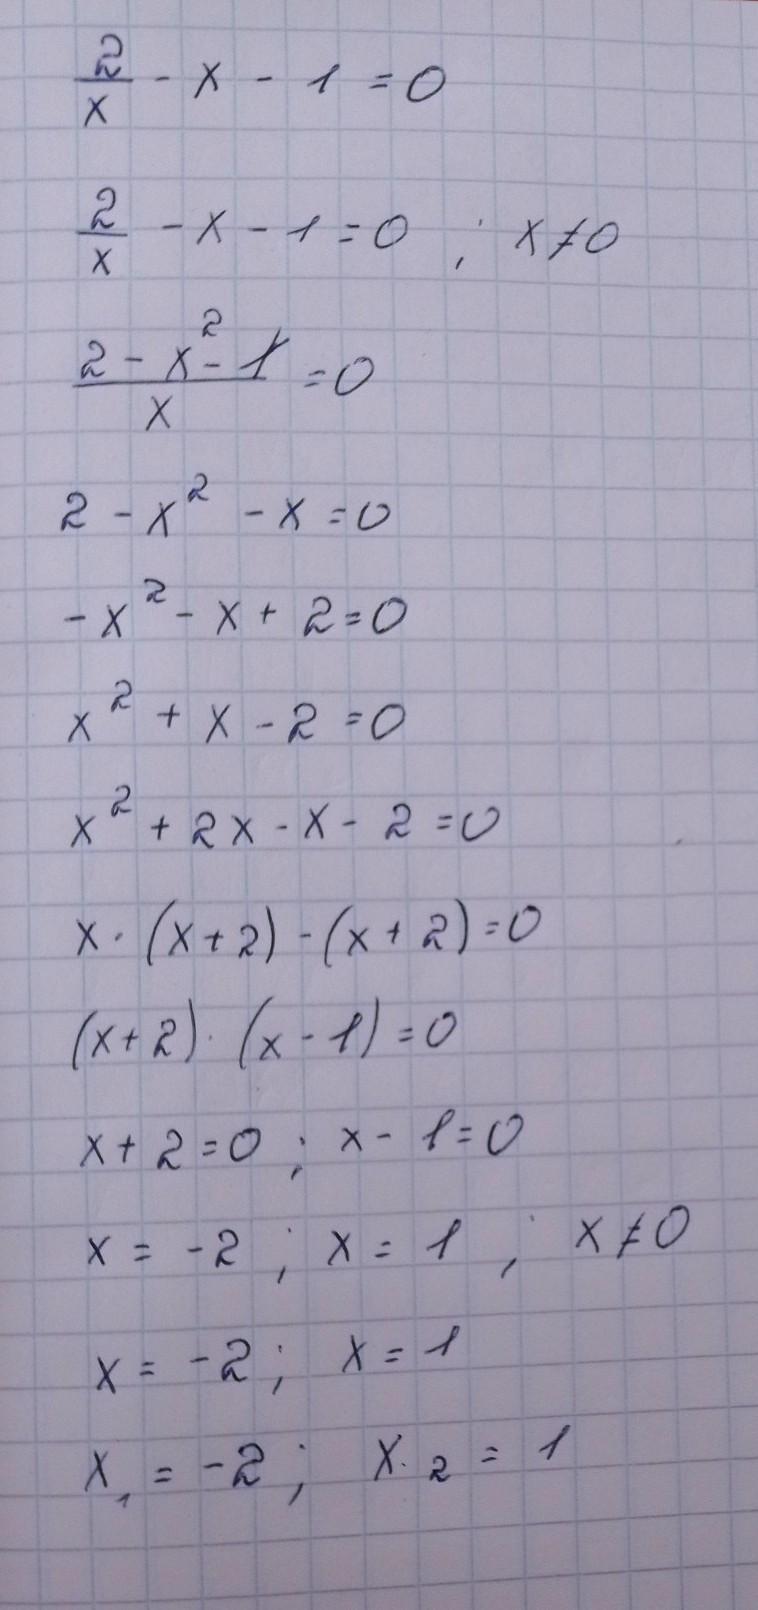 2/x - x - 1 = 0
2/x - x - 1 = 0 ; x ≠ 0
(2 - x² - 1)/x = 0
2 - x² - x = 0
-x² - x + 2 = 0
x² + x - 2 = 0
x² + 2x - x - 2 = 0
x · (x + 2) - (x + 2) = 0
(x + 2) · (x - 1) = 0
x + 2 = 0 ; x - 1 = 0
x = -2 ; x = 1 ; x ≠ 0
x = -2 ; x = 1
x₁ = -2 ; x₂ = 1